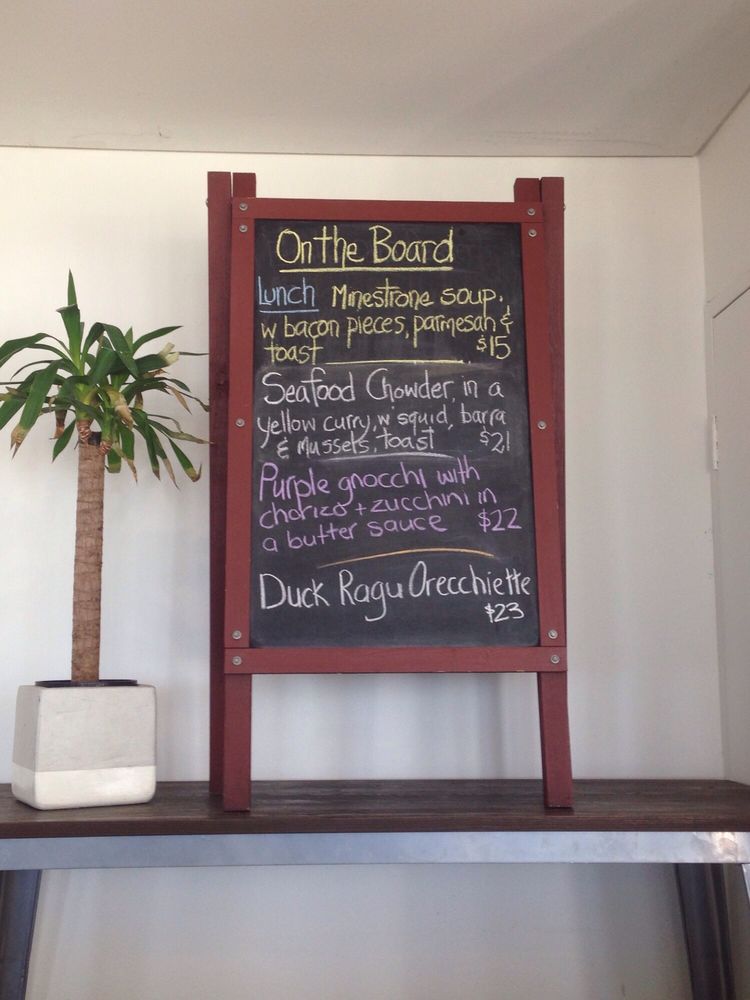 On the Board
Lunch Minestrone soup.
w bacon pieces, parmesan &
toast $15
Seafood Chowder, in a
yellow curry, w squid, barra
& Mussels, toast $21
Purple gnocchi with
chorizo + zucchini in
a butter sauce $22
Duck Ragu Orecchiette
$23